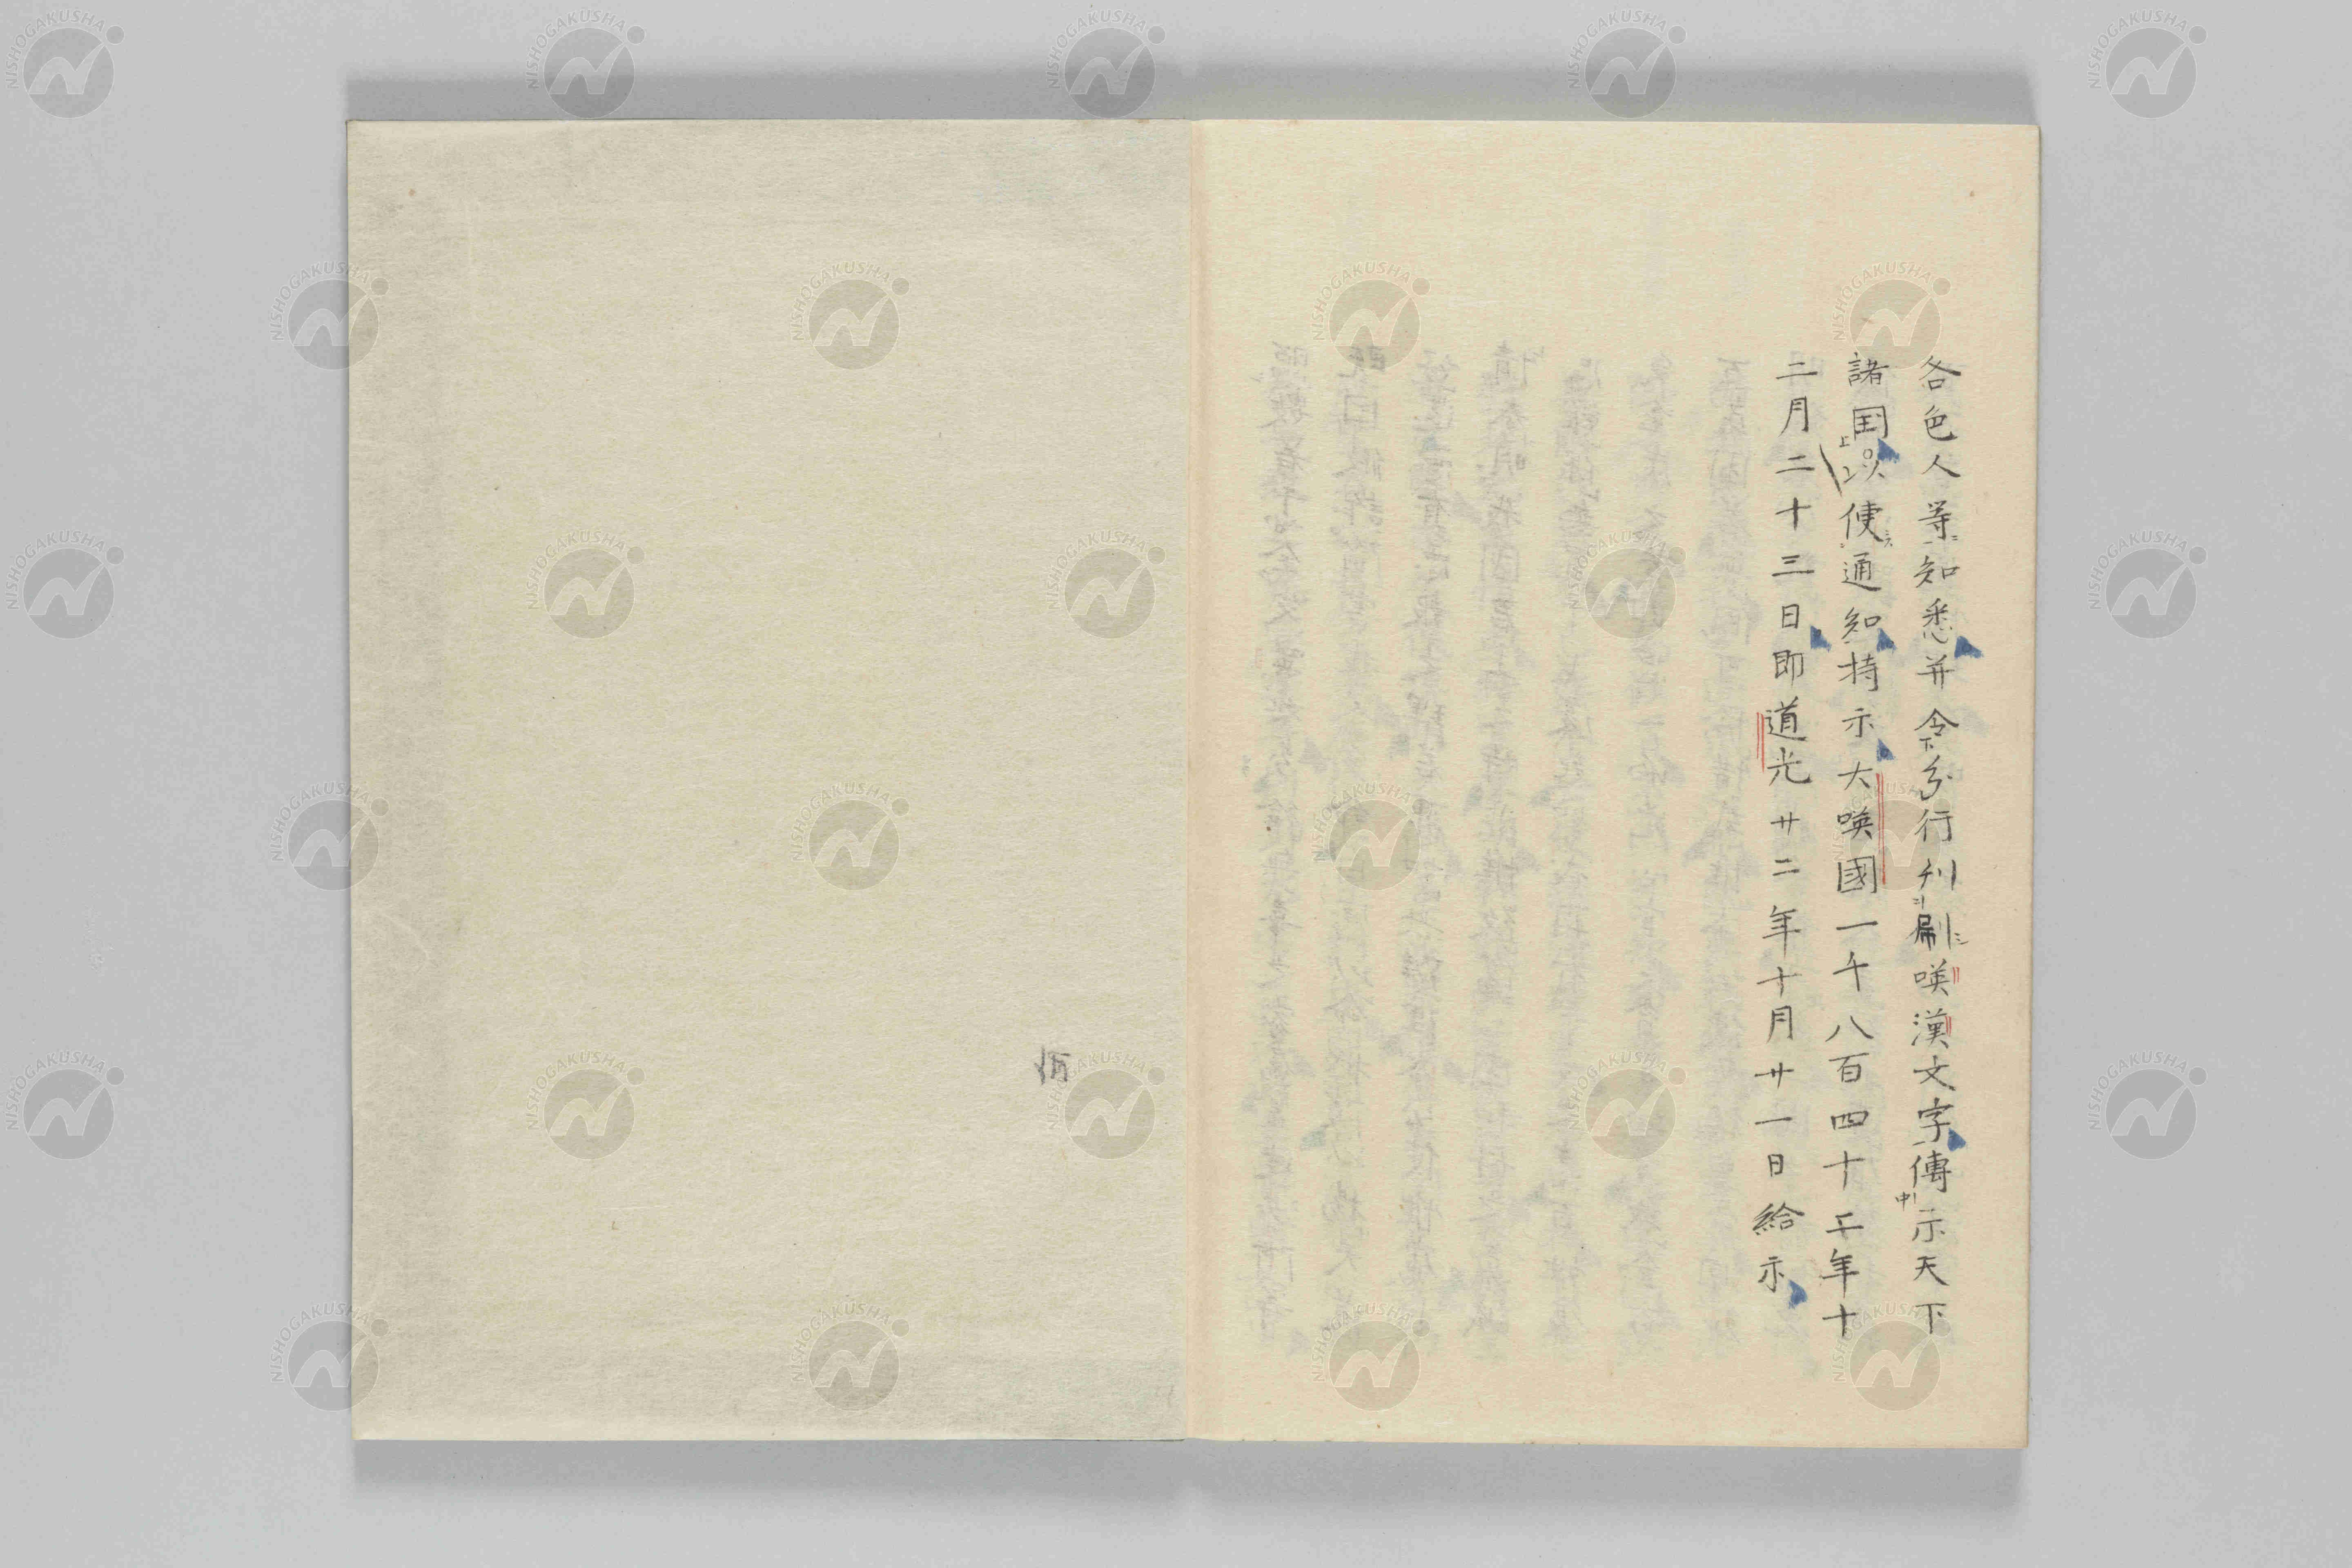 各色人等知悉并令分行刋刷𠸄漢文字傳示天下
諸国以使通知持示大㗂國一千八百四十二年十
二月二十三日即道光廿二年十月廿一日給示